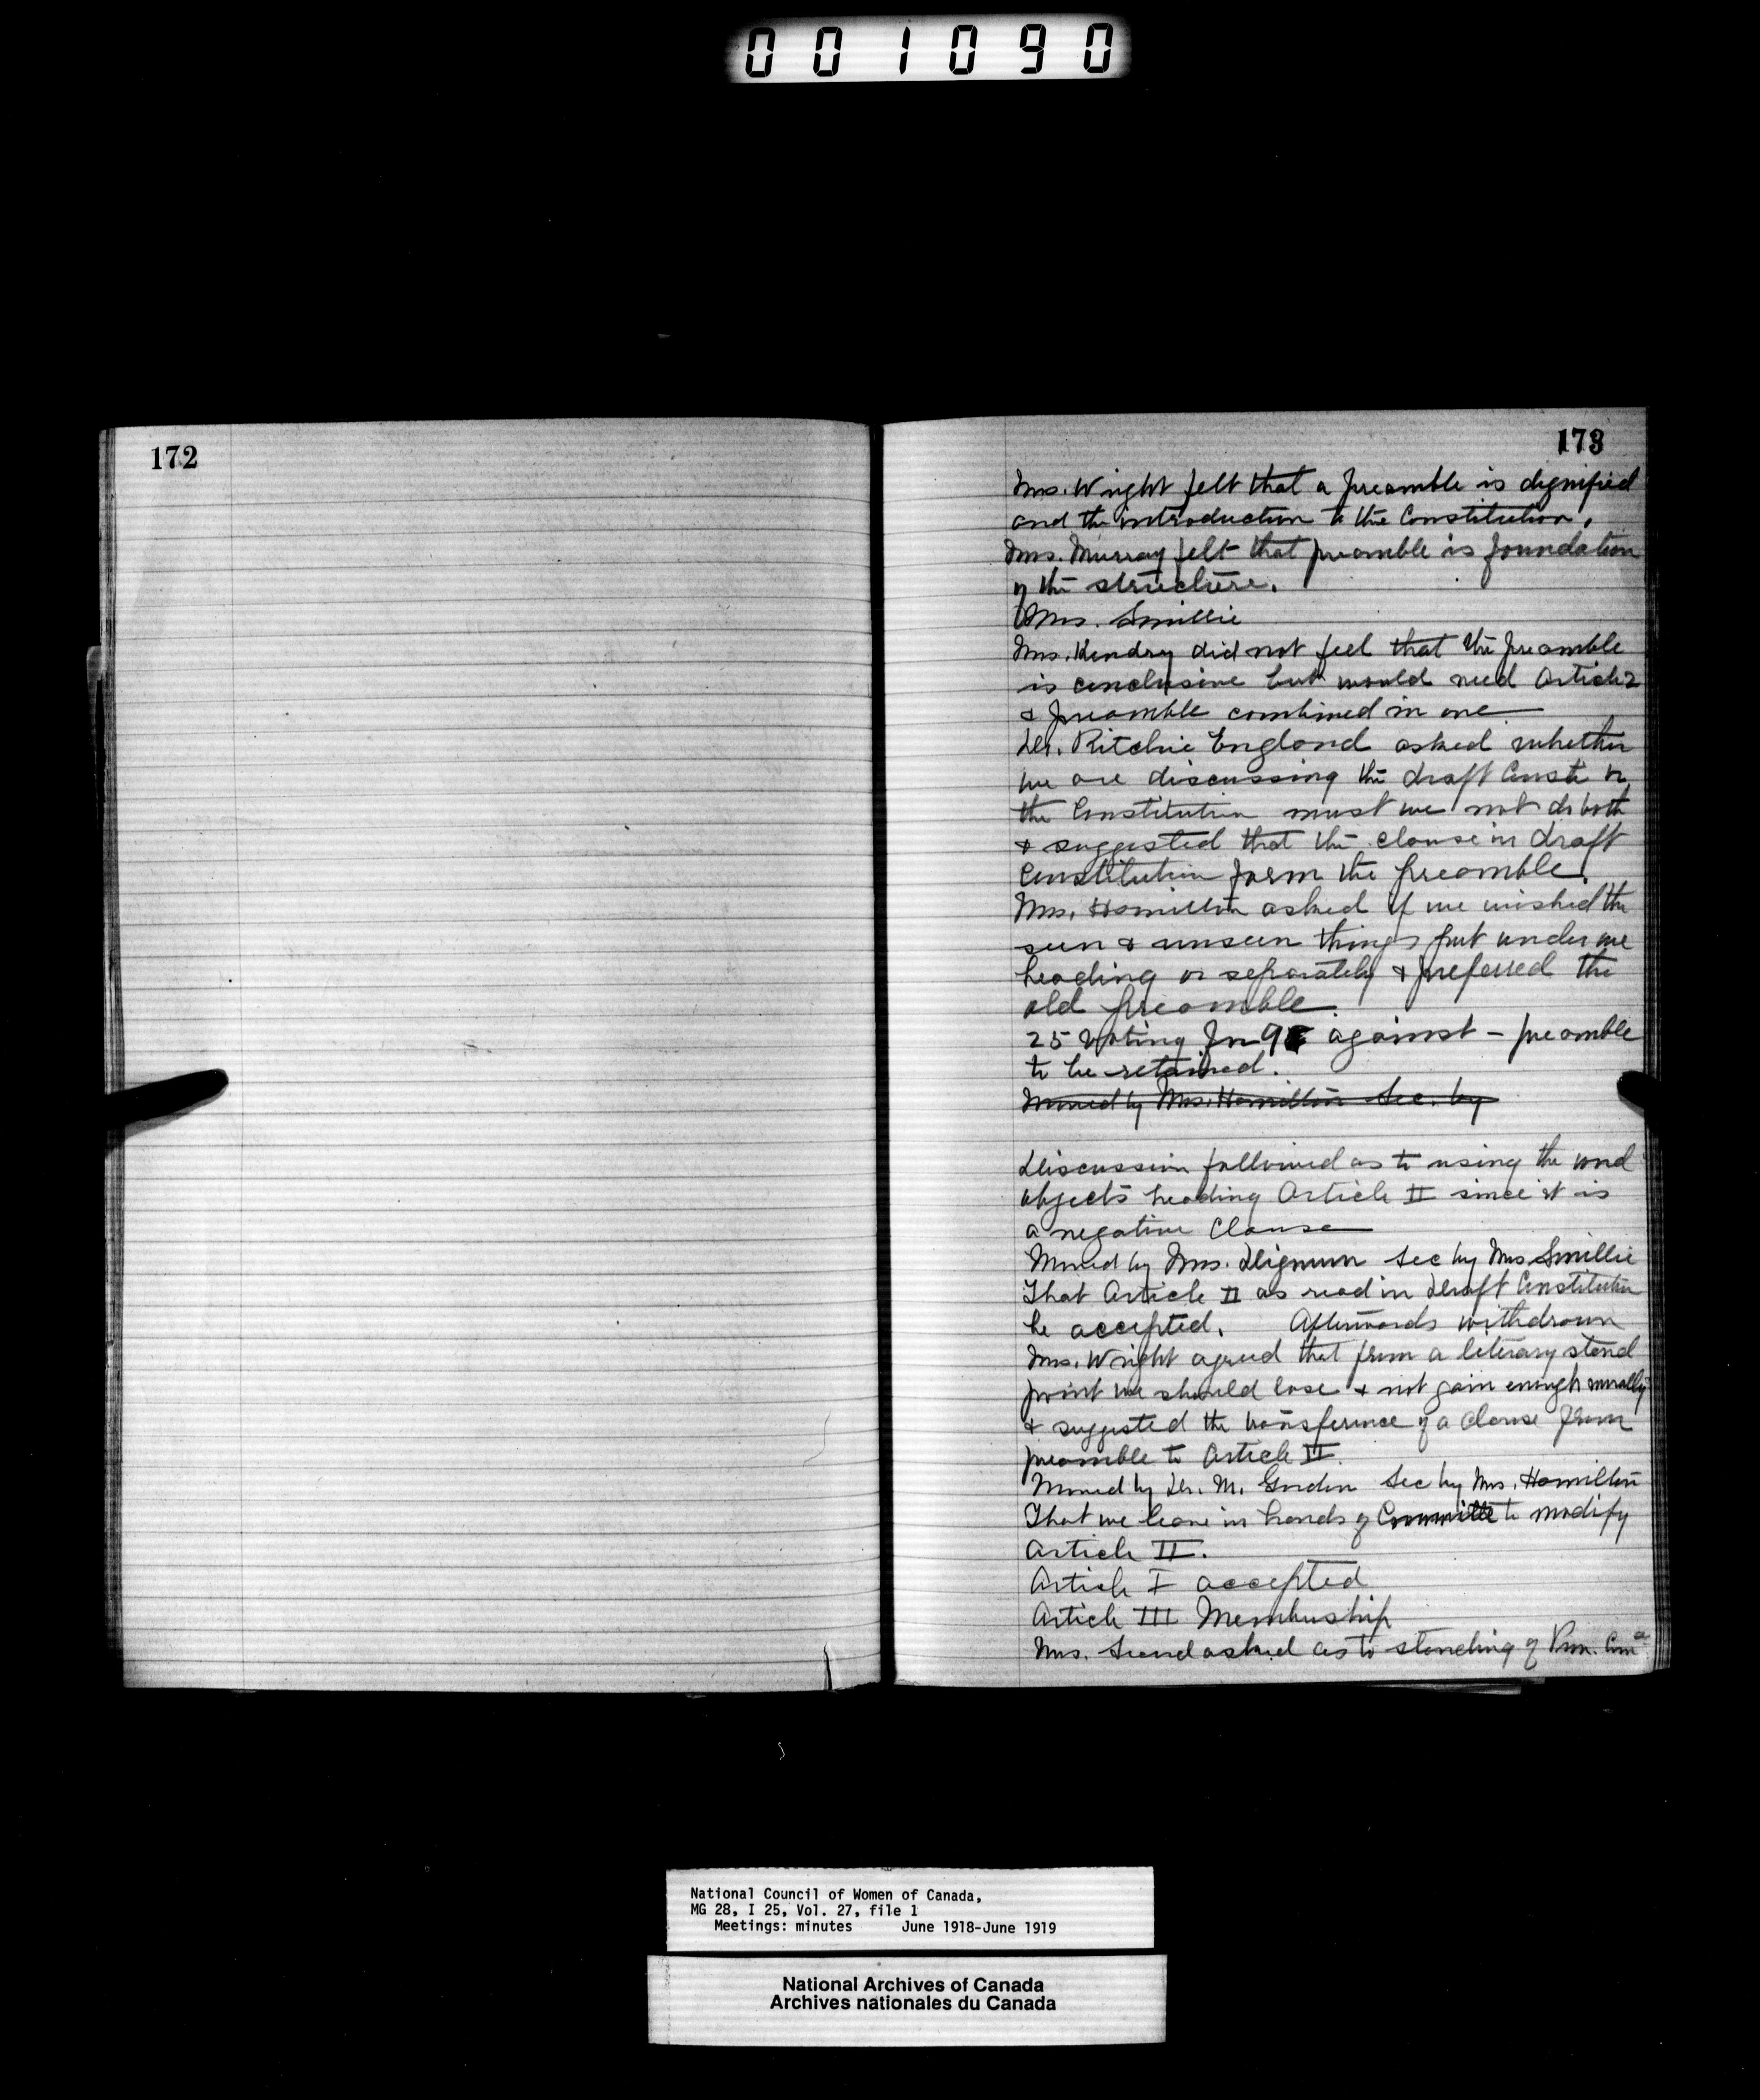 001090
172
173
Mrs. Wright felt that a preamble is dignified
and the introduction to the Constitution.
Mrs. Murray felt that preamble is foundation
of the structure.
Mrs. Smillie
Mrs. Kendry did not feel that the preamble
is conclusive but would need Article 2
& preamble combined in one
Dr. Ritchie England asked whether
we are discussing the draft Const. or
the Constitution must we not do both
& suggested that the clause in draft
Constitution form the preamble.
Mrs. Hamilton asked if we wished the
seen & unseen things put under one
heading or separately & preferred the
old preamble.
25 voting for 9 against - preamble
to be retained.
Moved by Mrs. Hamilton Sec. by
Discussion followed as to using the word
objects heading Article II since it is
a negative Clause
Moved by Mrs. Dignum Sec by Mrs Smillie
That Article II as read in Draft Constitution
be accepted. Afterwards withdrawn
Mrs. Wright agreed that from a literary stand
point we should lose & not gain enough morally
& suggested the transference of a clause from
preamble to Article II.
Moved by Dr. M. Gordon Sec by Mrs. Hamilton
That we leave in hands of Committee to modify
Article II.
Article I accepted
Article III Membership
Mrs. asked as to standing of Prov.
National Council of Women of Canada,
MG 28, I 25, Vol. 27, file 1
Meetings: minutes June 1918-June 1919
National Archives of Canada
Archives nationales du Canada